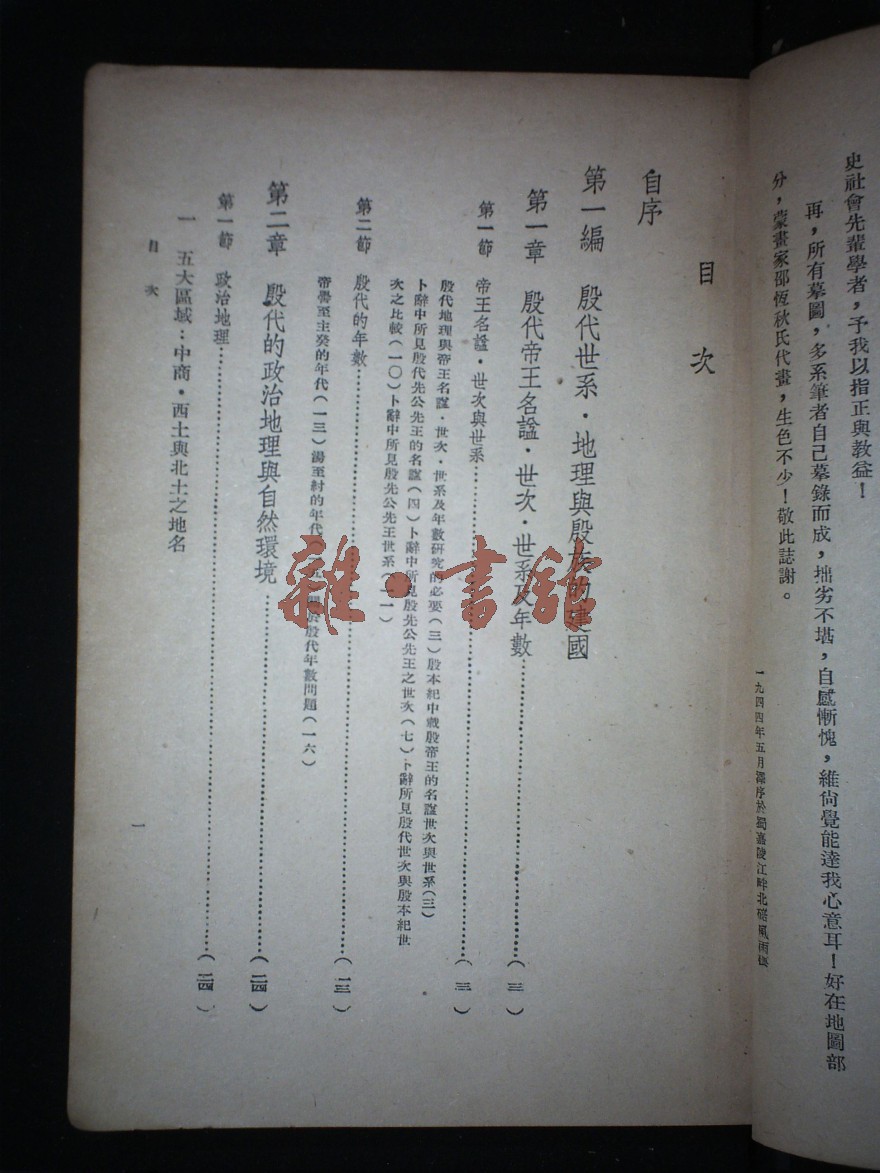 史社會先輩學者，予我以指正與教益！
再，所有墓圖，多系筆者自己墓錄而成，拙劣不堪，自感慚愧，維尙覺能達我心意耳！好在地圖部
分，蒙畫家邵恆秋氏代畫，生色不少！敬此誌謝。
一九四四年五月澤序於蜀嘉陵江畔北碚風雨樓
目次
自序
第一編 殷代世系·地理與殷族的建國
第一章 殷代帝王名謚·世次·世系及年數……(三)
第一節 帝王名謚·世次與世系……(三)
殷代地理與帝王名謚·世次·世系及年數研究的必要(三)殷本紀中載殷帝王的名謚世次與世系(三)
卜辭中所見殷代先公先王的名謚(四)卜辭中所見殷先公先王之世次(七)卜辭所見殷代世次與殷本紀世
次之比較(一〇)卜辭中所見殷先公先王世系(一一)
第二節 殷代的年數……(一三)
帝嚳至主癸的年代(一三)湯至紂的年代(一五)關於殷代年數問題(一六)
第二章 殷代的政治地理與自然環境……(二四)
第一節 政治地理……(二四)
一 五大區域：中商·西土與北土之地名
目次
一
雜·書館